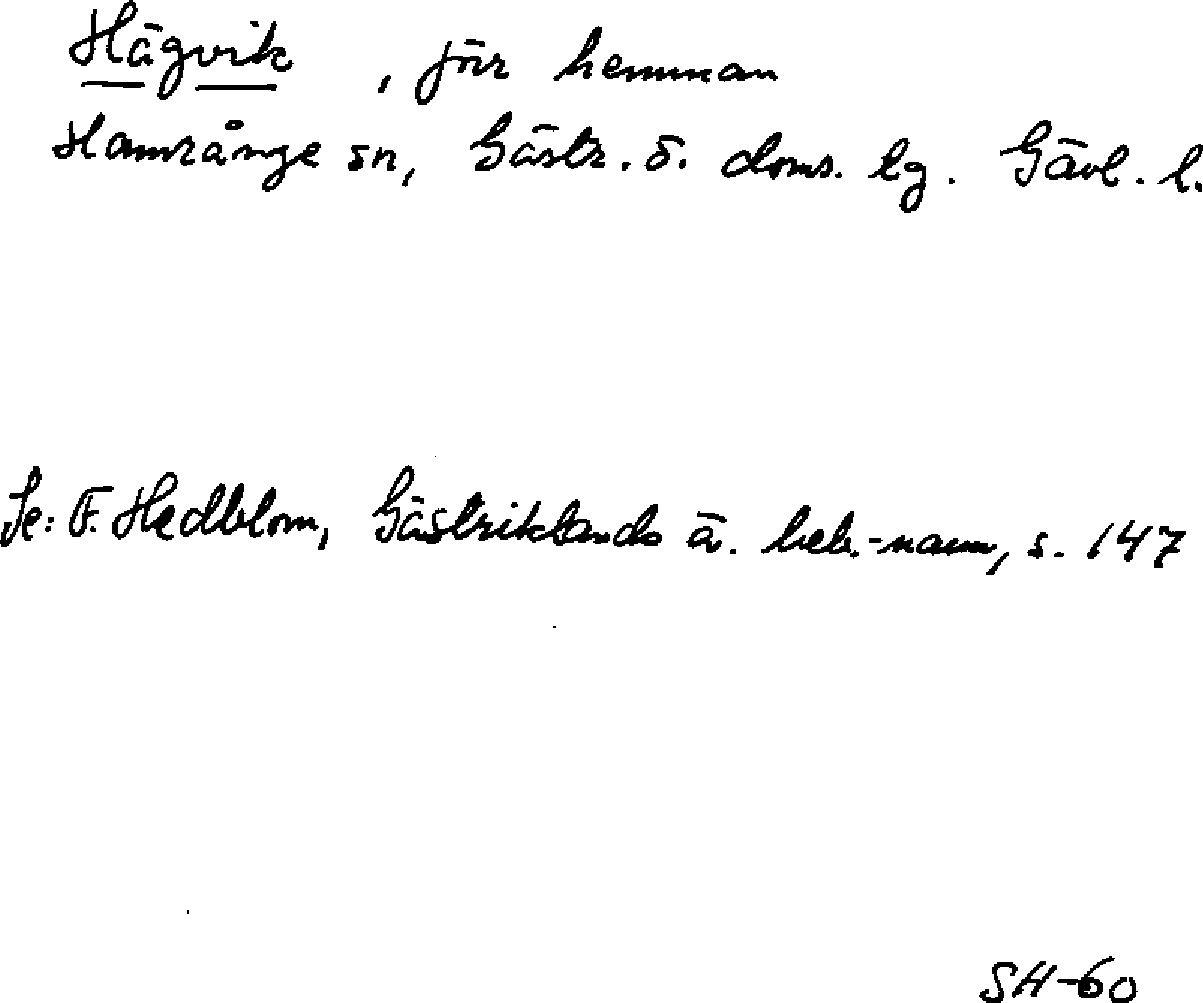 Hägvik , förr hemman
Hamrånge sn, Gästr. ö. doms. lg. Gävl. l.
Se: F. Hedblom, Gästriklands ä. beb.-namn, s. 147
SH-60